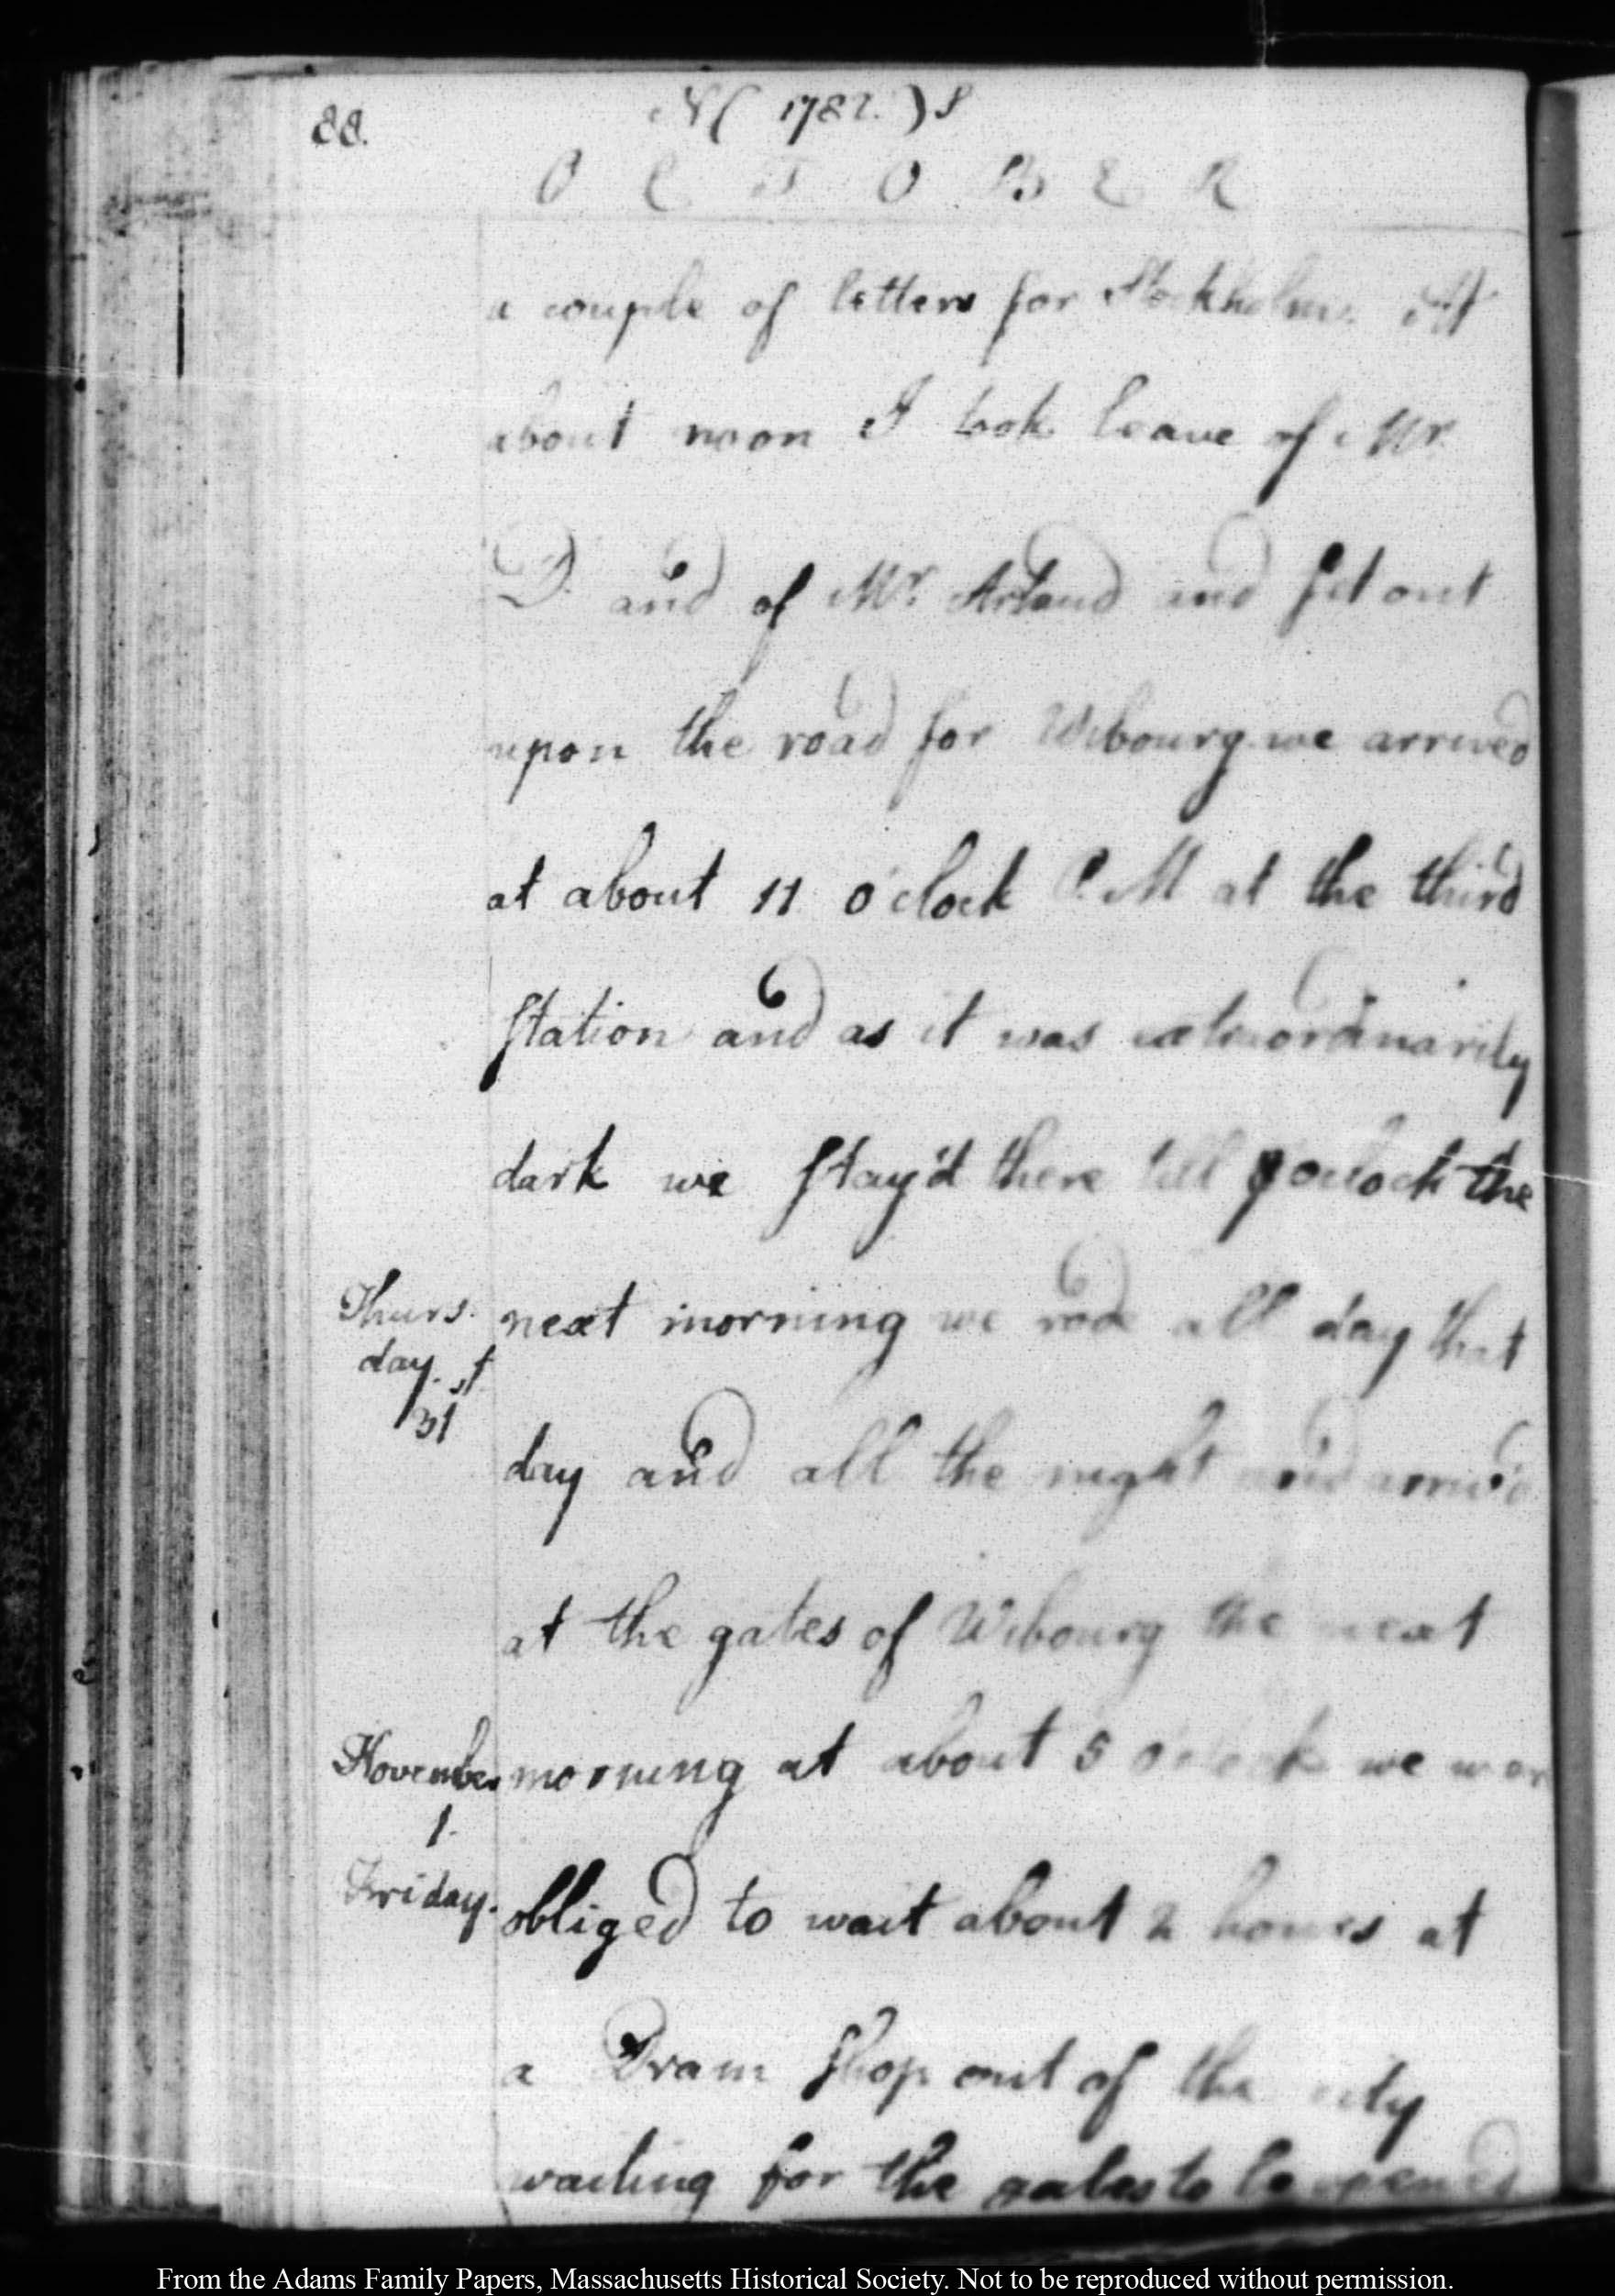 88.
N( 1782. )S
OCTOBER
a couple of letters for Stockholm. At
about noon I took leave of Mr.
D. and of Mr. Artaud and set out
upon the road for Wibourg. we arrived
at about 11 o'clock P.M at the third
station and as it was extraordinarily
dark we stay'd there till oclock the
Thurs. next morning we rode all day that
day. st
31
day and all the night and arriv'd
at the gates of Wibourg the next
November morning at about 5 oclock we wer
1.
Friday. obliged to wait about 2 hours at
a Dram shop out of the city
waiting for the gates to be opened
From the Adams Family Papers, Massachusetts Historical Society. Not to be reproduced without permission.